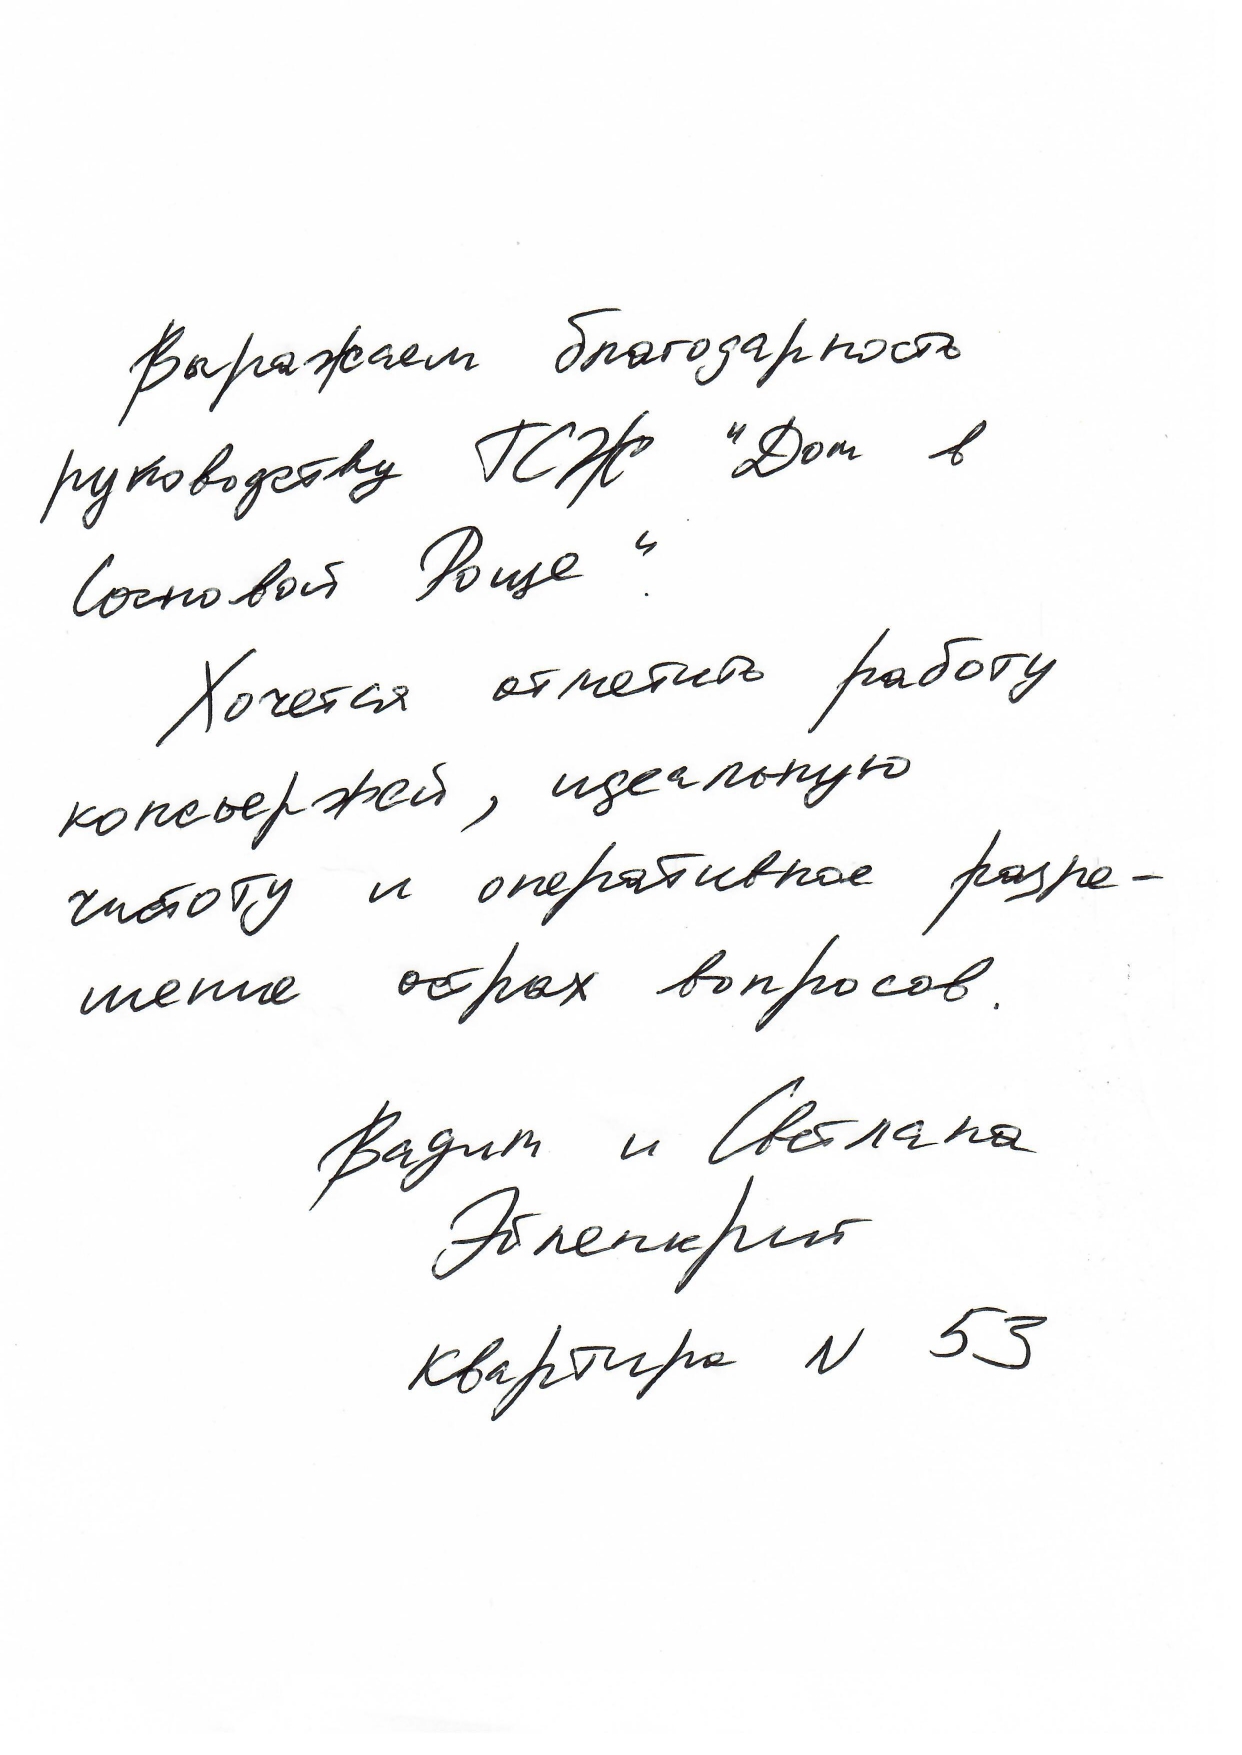 Выражаем благодарность
руководству ТСЖ "Дом в
Сосновой Роще".
Хочется отметить работу
консьержей, идеальную
чистоту и оперативное разре-
шение острых вопросов.
Вадим и Светлана
квартира N 53